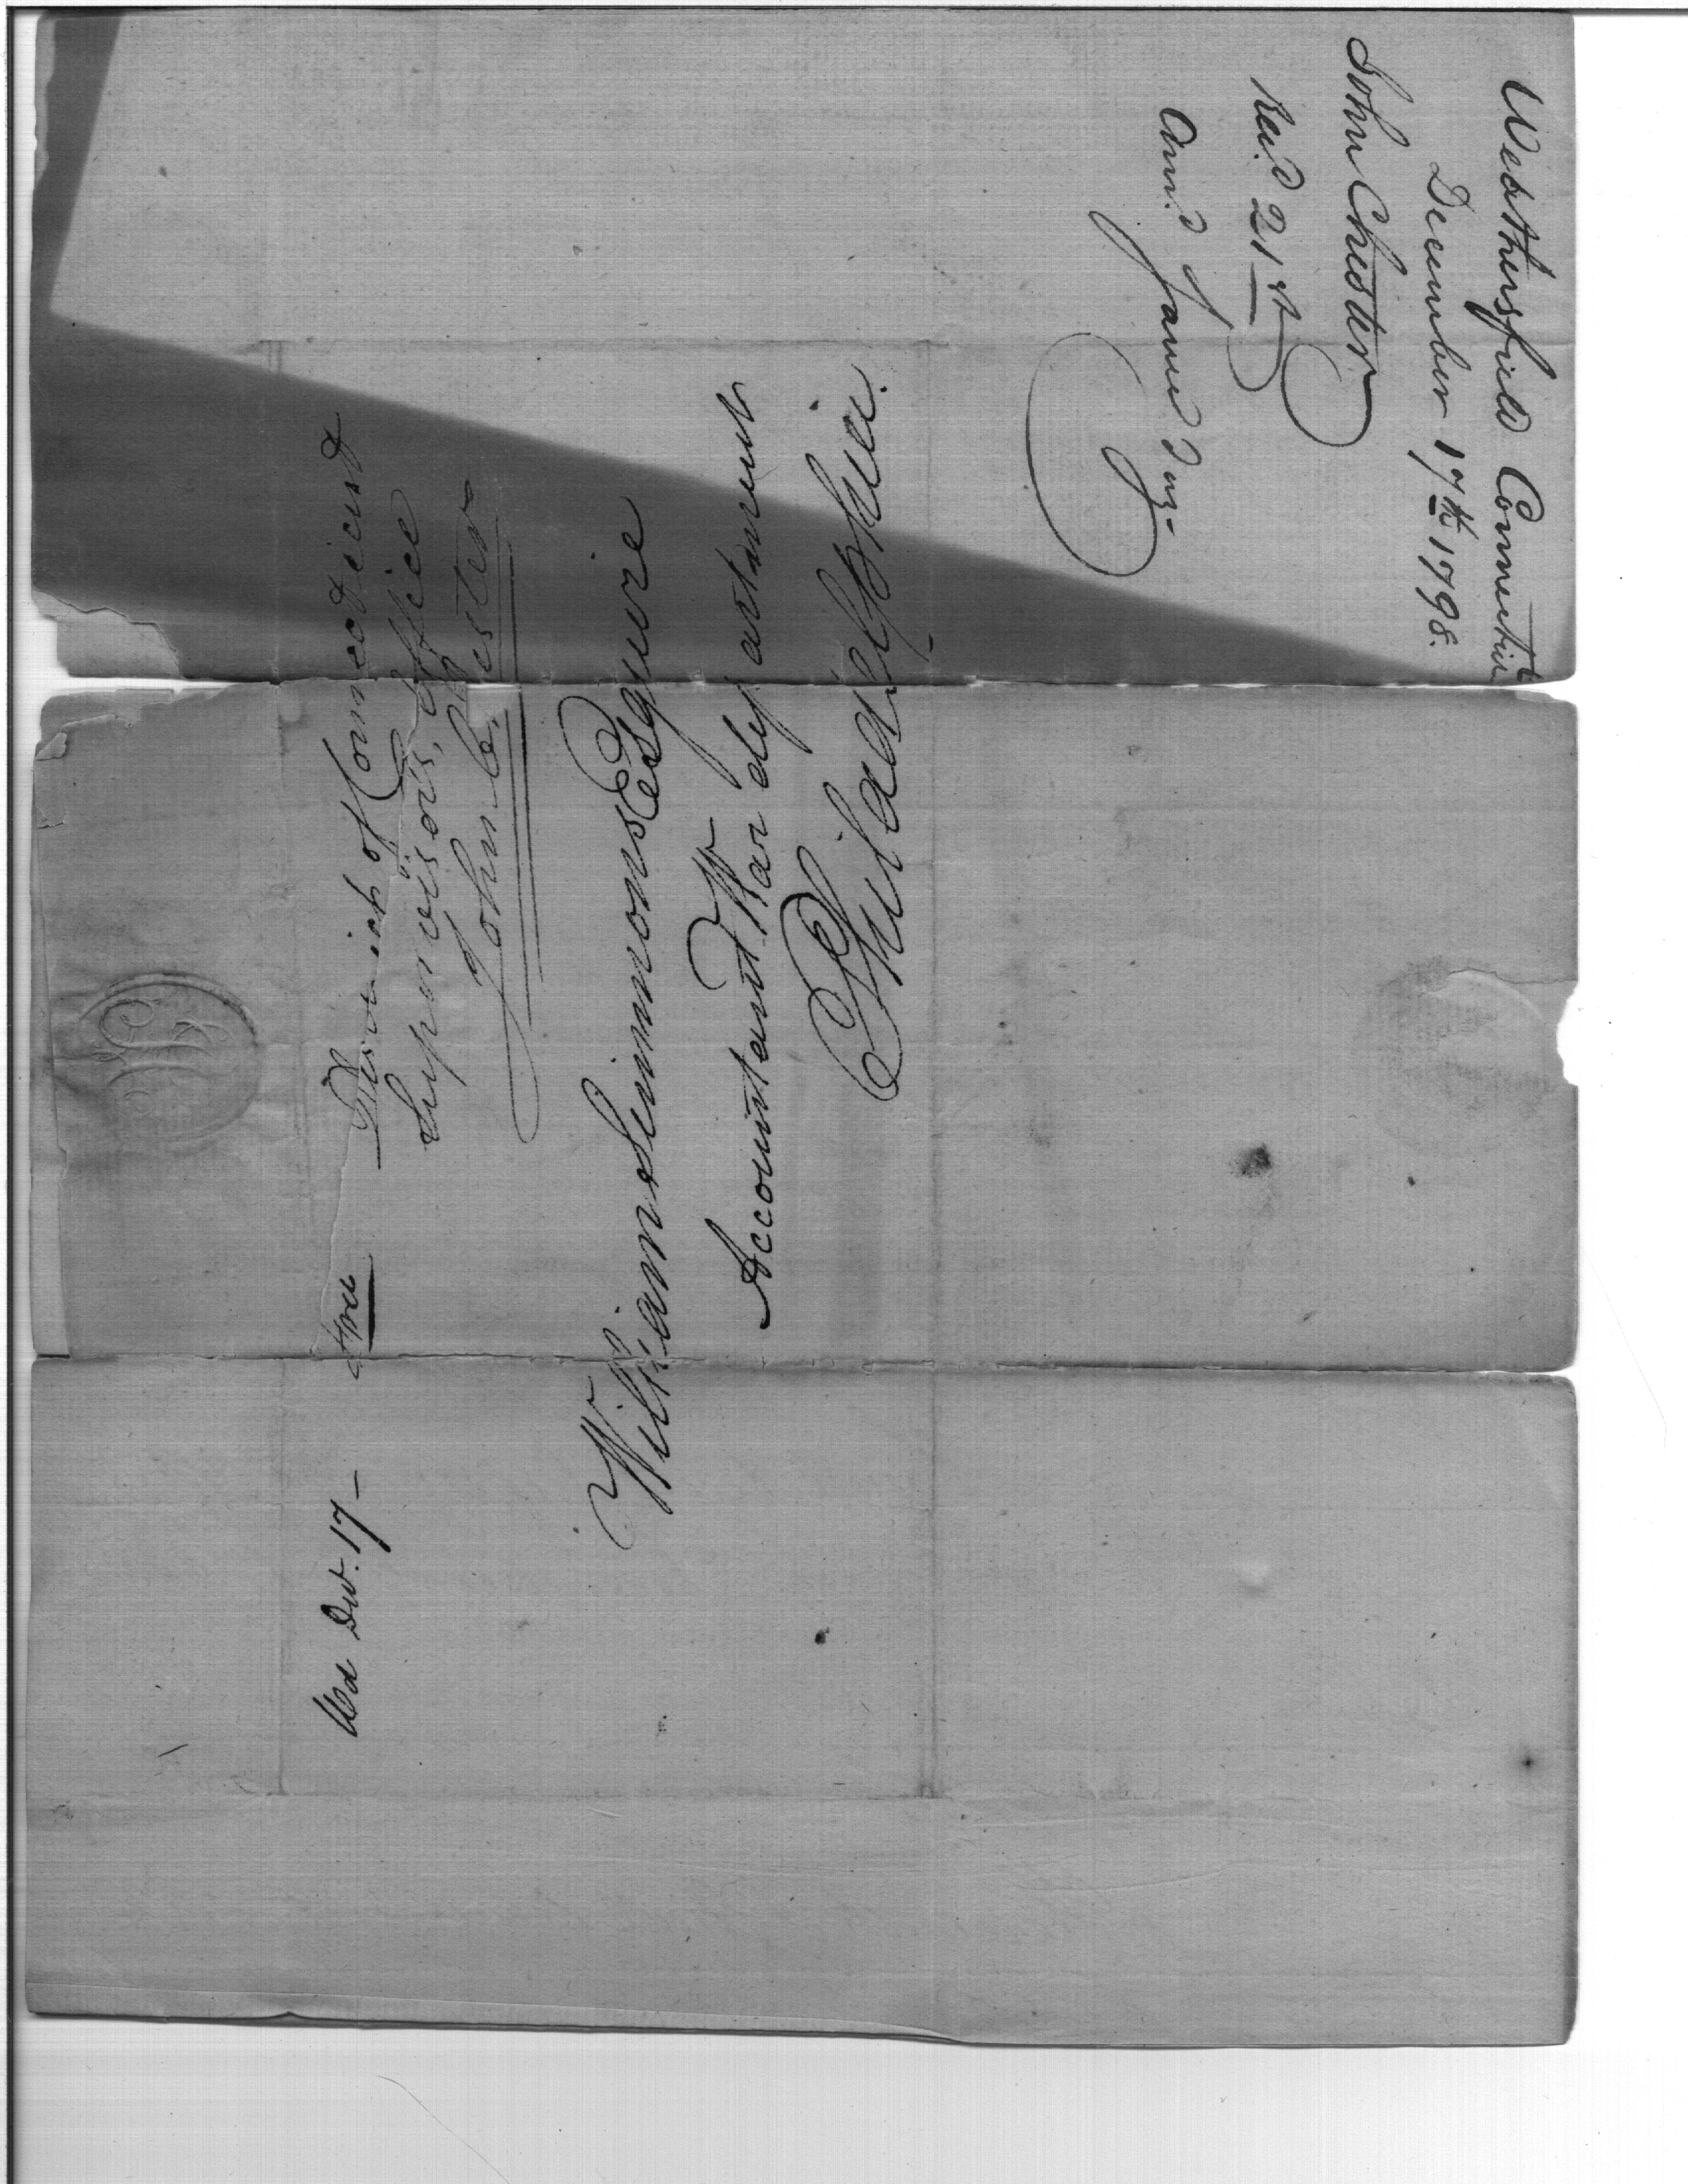 Weathersfield Connecticut
December 17th 1798.
John Chester
Recd 21st
Ansd same day
Dec. 17 –
Free
District of Connecticut
Supervisor's, Office
John Chester
William Simmons Esquire
Accountant War department
Philadelphia.